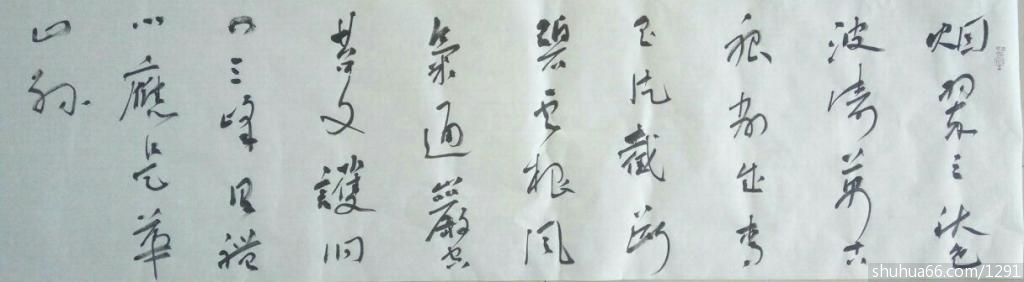 烟翠三秋色
波濤萬古
痕削成青
玉片截斷
碧雲根風
氣通巖穴
苔文護洞
門三峰具體
小應是華
山孫
shuhua66.com/1291